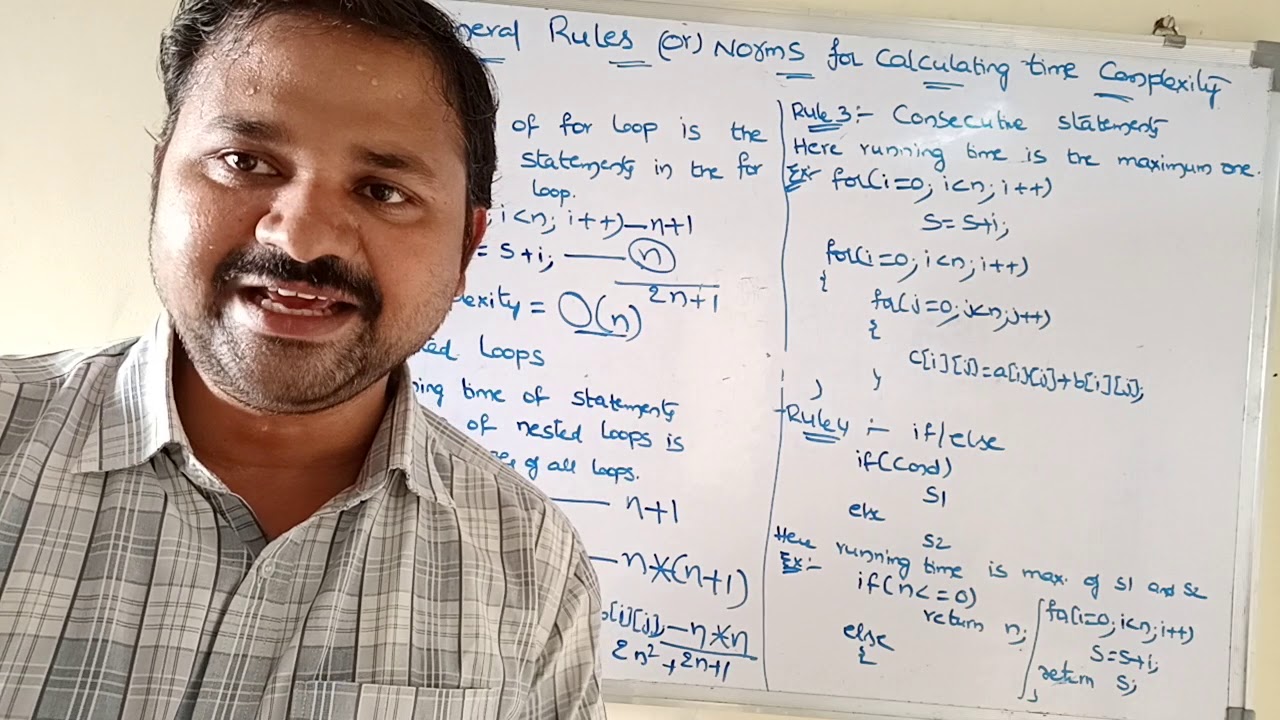 neral Rules (or) Norms for Calculating time Complexity
of for loop is the
statements in the for
loop.
; i<n; i++)—n+1
= s+i; —— n
2n+1
exity = O(n)
ed Loops
ing time of statements
of nested loops is
of all loops.
—— n+1
—n*(n+1)
b[i][j];—n*n
2n²+2n+1
Rule3:- Consecutive statements
Here running time is the maximum one.
Ex:- for(i=0; i<n; i++)
s=s+i;
for(i=0; i<n; i++)
{
for(j=0; j<n; j++)
{
c[i][j]=a[i][j]+b[i][j];
}
}
Rule4 :- if/else
if(cond)
S1
else
S2
Here running time is max. of S1 and S2
Ex:- if(n<=0)
return n;
else
{
for(i=0; i<n; i++)
s=s+i;
return s;
}